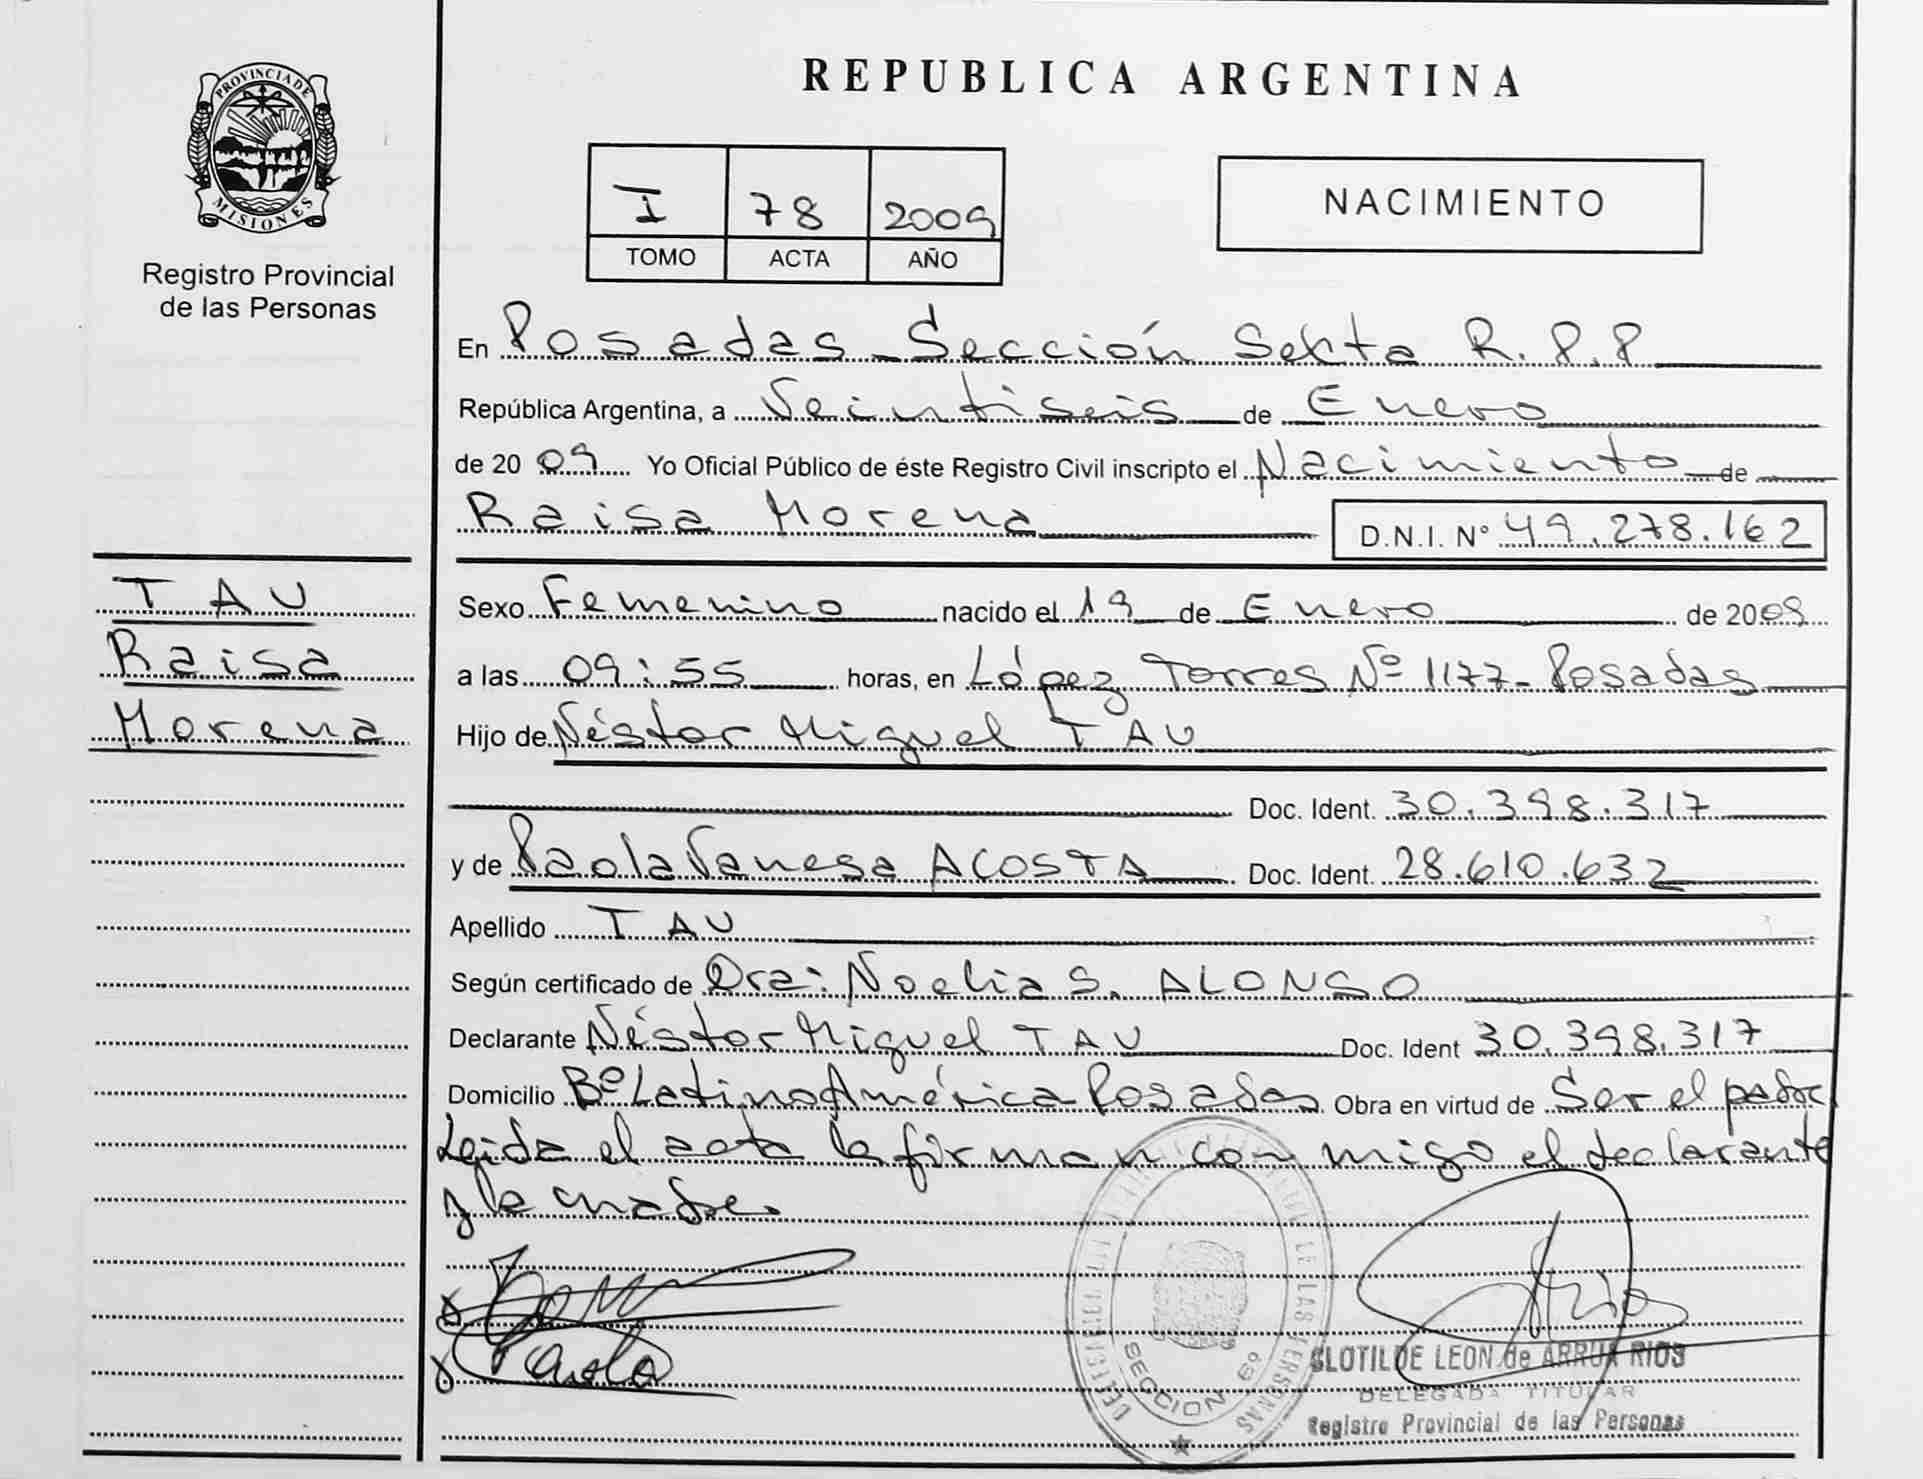 REPUBLICA ARGENTINA
PROVINCIA DE
MISIONES
Registro Provincial
de las Personas
I 78 2009
TOMO ACTA AÑO
NACIMIENTO
En Posadas - Sección Sexta R.P.P
República Argentina, a Veintiseis de Enero
de 20 09 Yo Oficial Público de éste Registro Civil inscripto el Nacimiento de
Raisa Morena D.N.I. N° 49.278.162
TAU
Raisa
Morena
Sexo Femenino nacido el 19 de Enero de 2009
a las 09:55 horas, en López Torres Nº 1177- Posadas
Hijo de Néstor Miguel TAU
Doc. Ident. 30.398.317
y de Paola Vanesa ACOSTA Doc. Ident. 28.610.632
Apellido TAU
Según certificado de Dra: Noelia S. ALONSO
Declarante Néstor Miguel TAU Doc. Ident 30.398.317
Domicilio Bº LatinoAmérica Posadas Obra en virtud de Ser el padre
Leida el acta la firman con migo el declarante
y la madre.
Paola
SECCION 6º
CLOTILDE LEON de ARRUA RIOS
DELEGADA TITULAR
Registro Provincial de las Personas